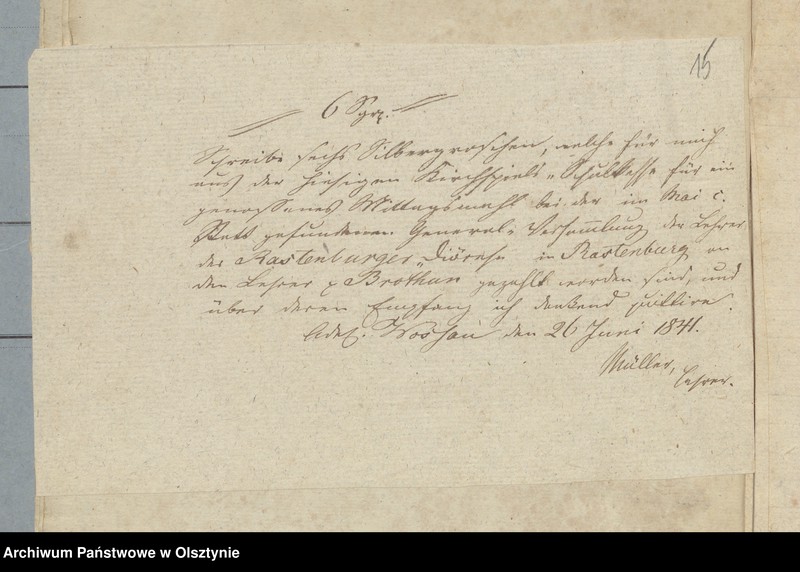 15
6 Sgr.
Schreibe sechs Silbergroschen, welche für mich
aus der hiesigen Kirchspiels-Schulkasse für ein
genossenes Mittagsmahl bei der im Mai c.
Statt gefundenen General-Versammlung der Lehrer
der Rastenburger Diöcese in Rastenburg an
den Lehrer Brothun gezahlt worden sind, und
über deren Empfang ich dankend quittire.
Adl. den 26 Juni 1841.
Müller,
Lehrer.
Archiwum Państwowe w Olsztynie